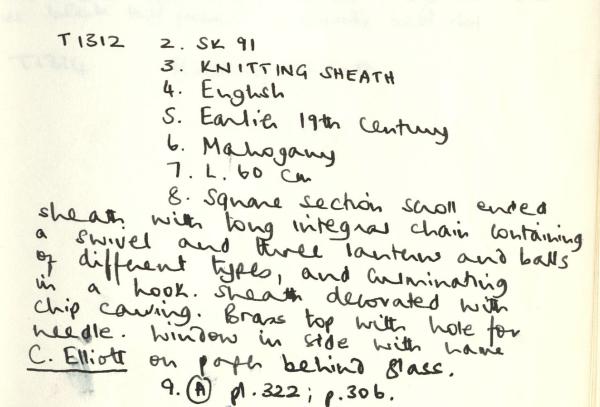 T1312 2. SK 91
3. KNITTING SHEATH
4. English
5. Earlier 19th Century
6. Mahogany
7. L. 60 cm
8. Square section scroll ended
sheath with long integral chain containing
a swivel and three lanterns and balls
of different types, and culminating
in a hook. Sheath decorated with
chip carving. Brass top with hole for
needle. Window in side with name
C. Elliott on paper behind glass.
9. (A) pl. 322; p. 306.